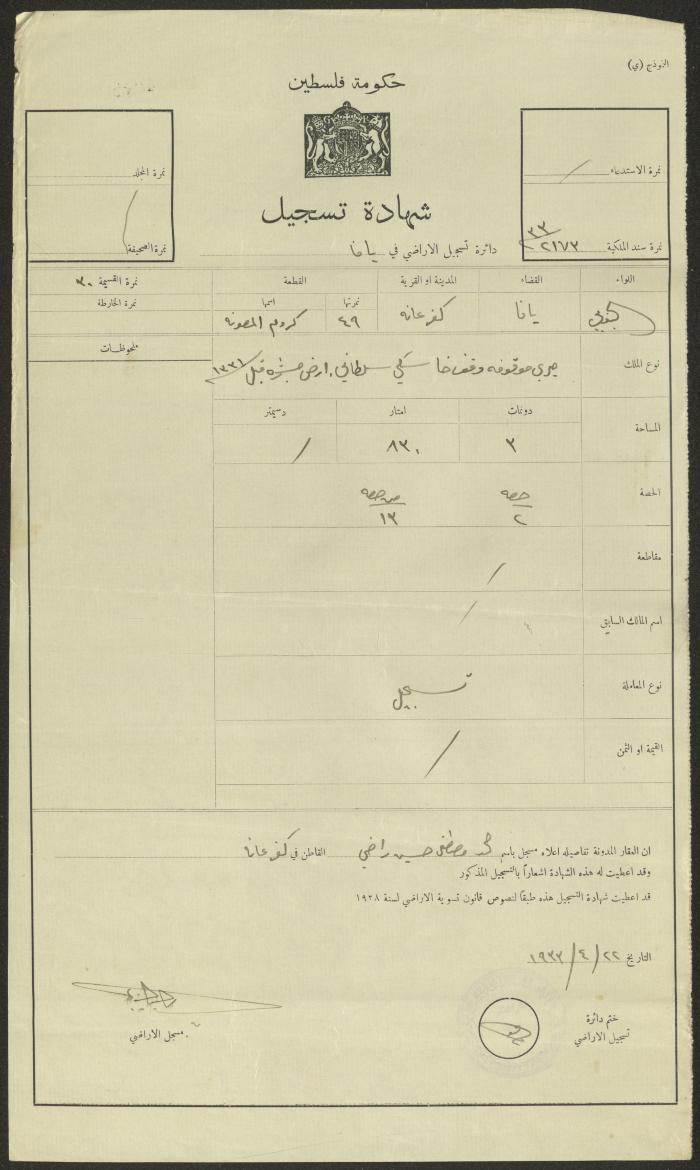 النموذج (ي)
حكومة فلسطين
شهادة تسجيل
نمرة الاستدعاء /
نمرة سند الملكية ٢١٧٣/٣٣
نمرة المجلد
نمرة الصحيفة
دائرة تسجيل الاراضي في يافا
اللواء القضاء المدينة او القرية القطعة نمرة القسيمة ٣٠
نمرتها اسمها نمرة الخارطة
الجنوبي يافا كفرعانه ٤٩ كروم
ملحوظات
نوع الملك ميري موقوفه وقف سلطاني
المساحة دونمات امتار دسيمتر
٣ ٨٣٠ /
الحصة حصه من حصه
٢ ١٣
مقاطعة /
اسم المالك السابق /
نوع المعاملة تسجيل
القيمة او الثمن /
ان العقار المدونة تفاصيله اعلاه مسجل باسم محمد مصطفى حسين راضي القاطن في كفرعانا
وقد اعطيت له هذه الشهادة اشعاراً بالتسجيل المذكور
قد اعطيت شهادة التسجيل هذه طبقاً لنصوص قانون تسوية الاراضي لسنة ١٩٢٨
التاريخ ٢٢/٤/١٩٣٣
ختم دائرة
تسجيل الاراضي
مسجل الاراضي